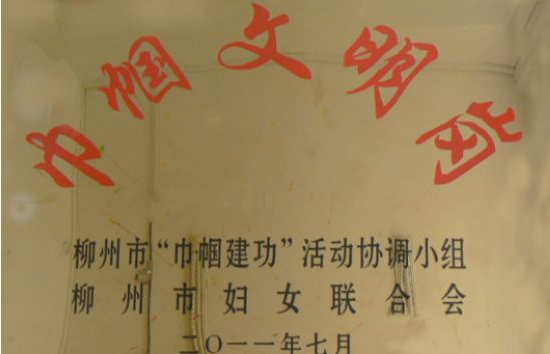 巾帼文明岗
柳州市“巾帼建功”活动协调小组
柳州市妇女联合会
二〇一一年七月